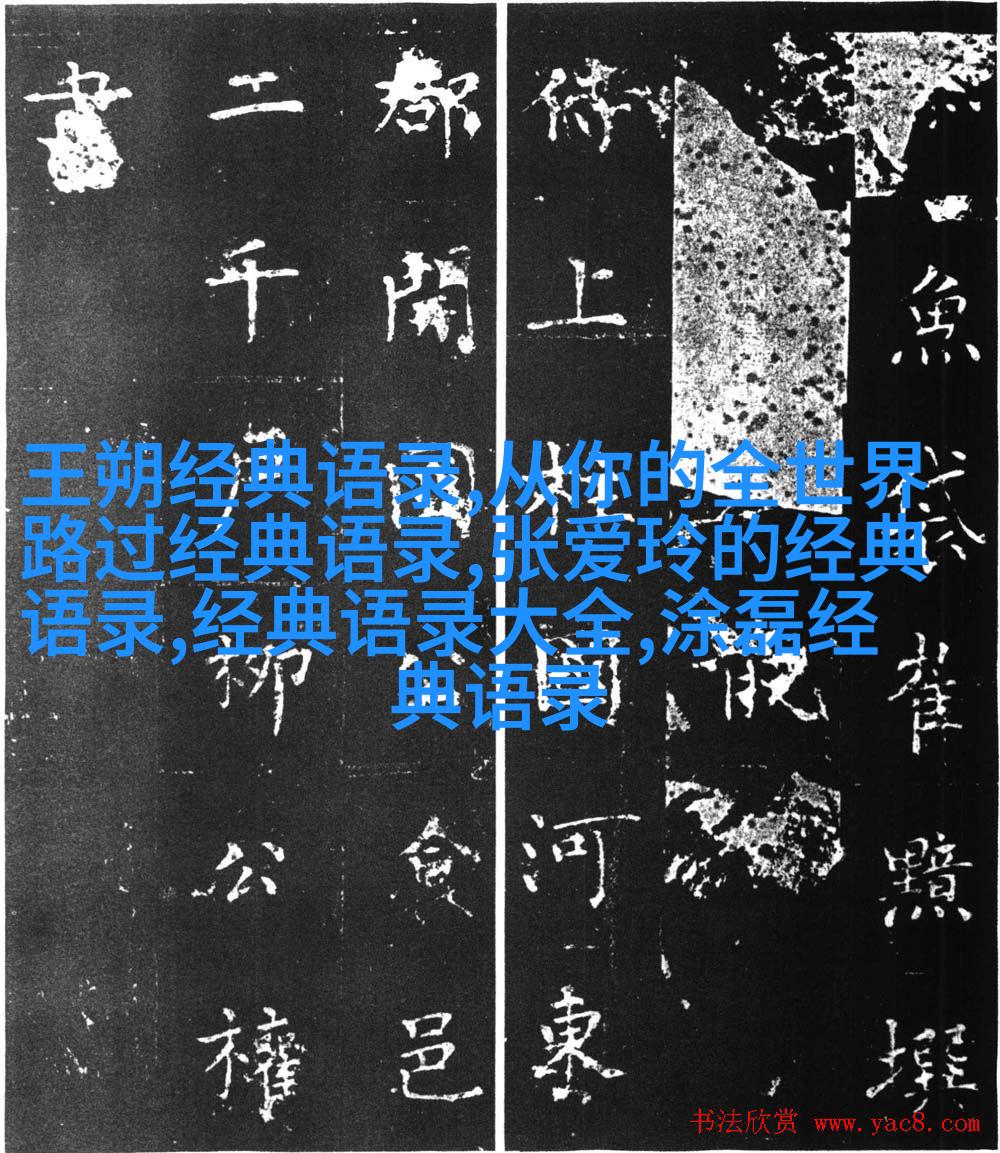 魚崔黯撰
侍上柱國河東
郡開國公食邑
二千戶柳公權
書
王朔经典语录,从你的全世界
路过经典语录,张爱玲的经典
语录,经典语录大全,涂磊经
典语录
书法欣赏 www.yac8.com